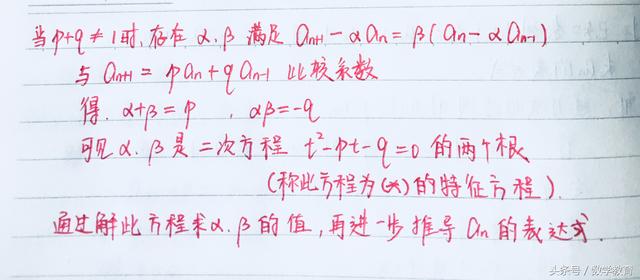 当p+q≠1时,存在 α.β 满足 aₙ₊₁-αaₙ=β(aₙ-αaₙ₋₁)
与 aₙ₊₁=paₙ+qaₙ₋₁ 比较系数
得. α+β=p , αβ=-q
可见 α.β 是二次方程 t²-pt-q=0 的两个根
(称此方程为(*)的特征方程).
通过解此方程求α.β的值,再进一步推导aₙ的表达式.
头条号/数学教育